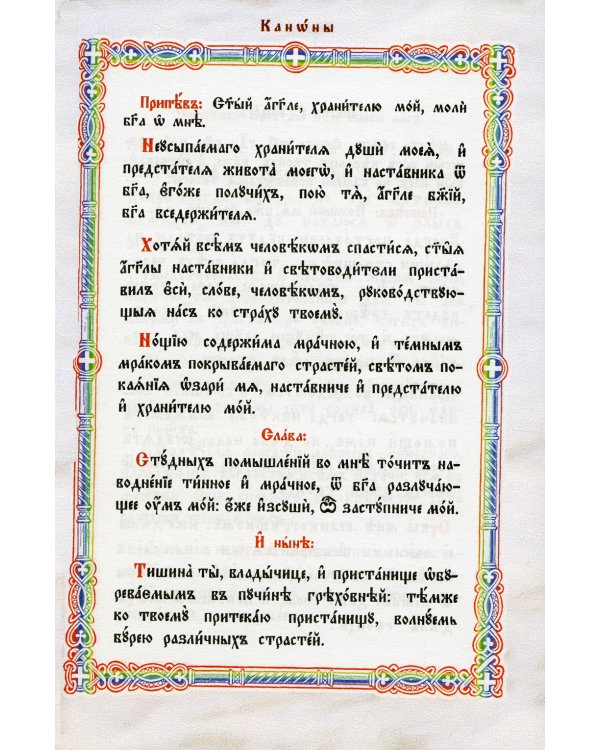 Канѡ́ны
Припѣ́въ: Ст҃ы́й а҆́гг҃ле, храни́телю мо́й, молѝ
бг҃а ѡ҆ мнѣ̀.
Неꙋсыпа́емаго храни́телѧ дꙋшѝ моеѧ̀, и҆
предста́телѧ живота̀ моегѡ̀, и҆ наста́вника ѿ
бг҃а, є҆го́же полꙋчи́хъ, пою́ тѧ, а҆́гг҃ле бж҃їй,
бг҃а вседержи́телѧ.
Хотѧ́й всѣ̑мъ человѣ́кѡмъ спасти́сѧ, ст҃ы̑ѧ
а҆́гг҃лы наста́вники и҆ свѣтоводи́тели приста́-
вилъ є҆сѝ, сло́ве, человѣ́кѡмъ, рꙋково́дствꙋю-
щыѧ на́съ ко стра́хꙋ твоемꙋ̀.
Но́щїю содержи́ма мра́чною, и҆ те́мнымъ
мра́комъ покрыва́емаго страсте́й, свѣ́томъ по-
каѧ́нїѧ ѡ҆зарѝ мѧ, наста́вниче и҆ предста́телю
и҆ храни́телю мо́й.
Сла́ва:
Стꙋ́дныхъ помышле́нїй во мнѣ̀ то́читъ на-
водне́нїе ти́нное и҆ мра́чное, ѿ бг҃а разлꙋча́ю-
щее ᲂу҆́мъ мо́й: є҆́же и҆зсꙋшѝ, ѽ застꙋ́пниче мо́й.
И҆ ны́нѣ:
Тишина̀ ты̀, влады́чице, и҆ приста́нище ѡ҆бꙋ-
рева́емымъ въ пꙋчи́нѣ грѣхо́внѣй: тѣ́мже
ко твоемꙋ̀ притека́ю приста́нищꙋ, волнꙋ́емь
бꙋ́рею разли́чныхъ страсте́й.